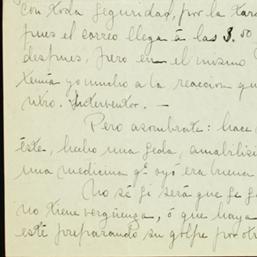 con toda seguridad, por la tar
pues el correo llega á las 3.50
despues, pero en el mismo
temia yo mucho a la reaccion qu
ntro. Interventor. —
Pero asombrate: hace
éste, hecho una seda, amabilisi
una medicina qe oyó era buena
No sé si será que se
no tiene vergüenza, ó que haya
esté preparando su golpe por otr